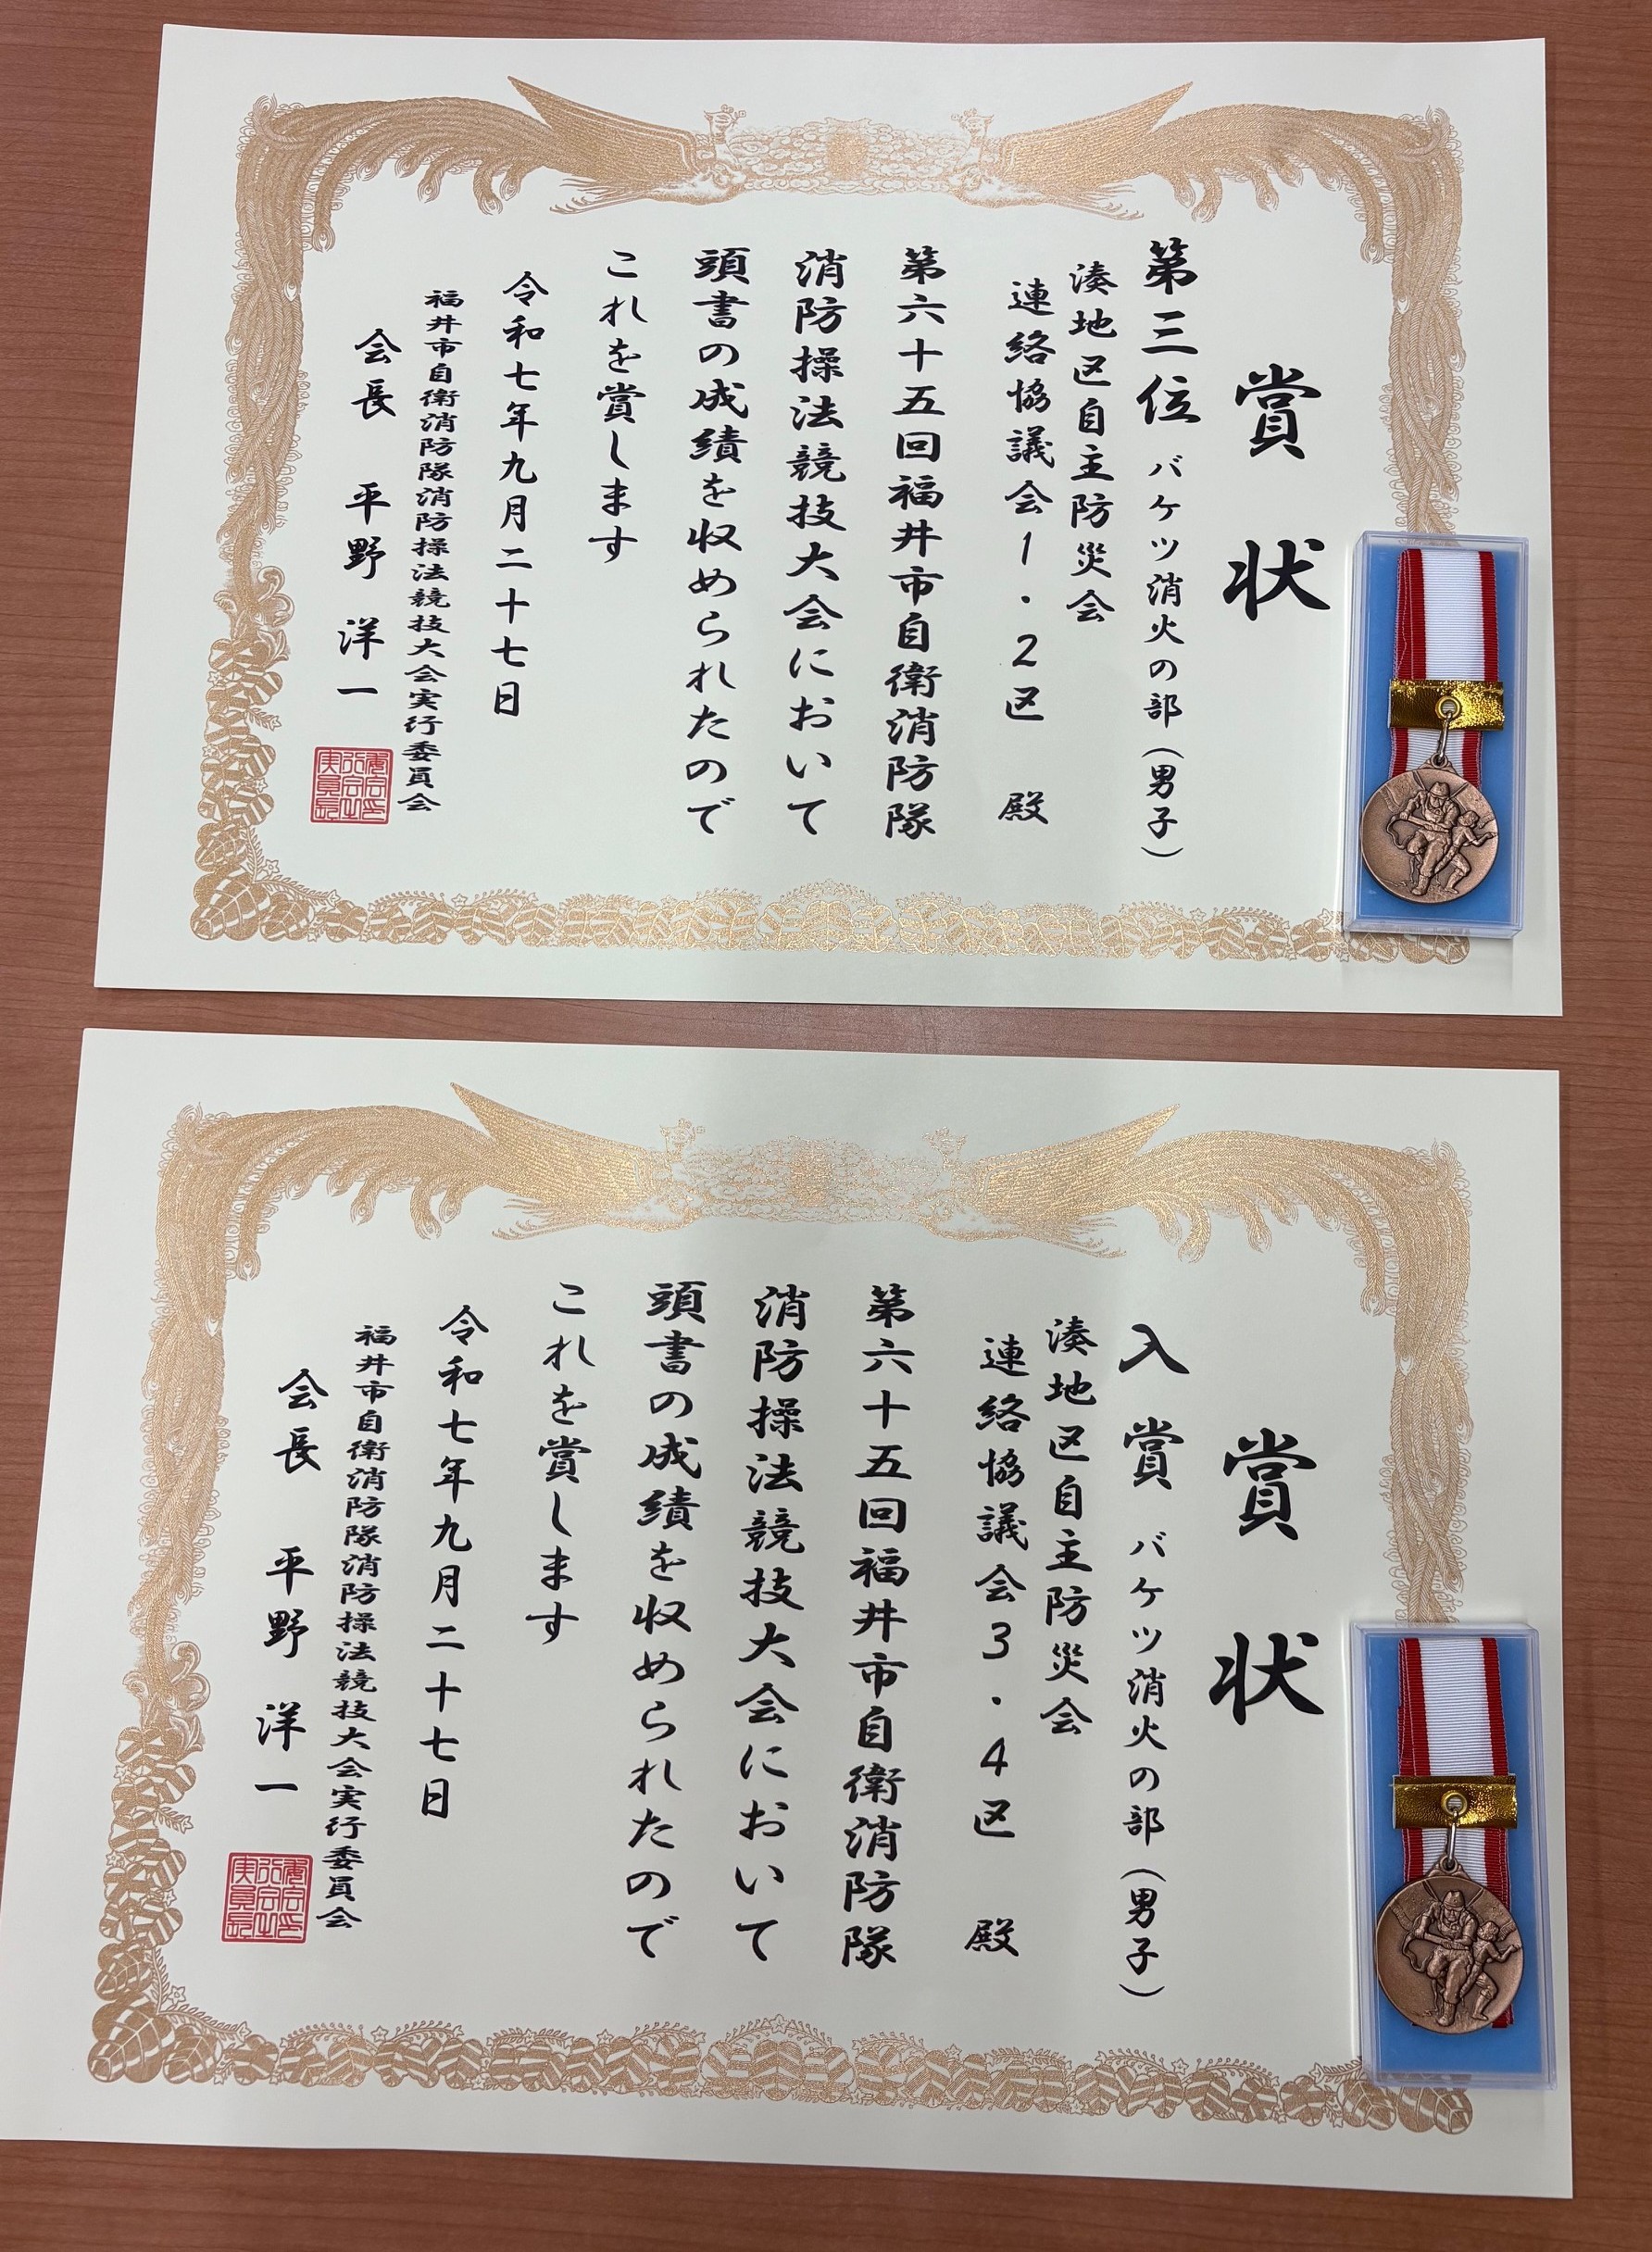 賞状
第三位 バケツ消火の部（男子）
湊地区自主防災会
連絡協議会1・2区 殿
第六十五回福井市自衛消防隊
消防操法競技大会において
頭書の成績を収められたので
これを賞します
令和七年九月二十七日
福井市自衛消防隊消防操法競技大会実行委員会
会長 平野洋一
賞状
入賞 バケツ消火の部（男子）
湊地区自主防災会
連絡協議会3・4区 殿
第六十五回福井市自衛消防隊
消防操法競技大会において
頭書の成績を収められたので
これを賞します
令和七年九月二十七日
福井市自衛消防隊消防操法競技大会実行委員会
会長 平野洋一